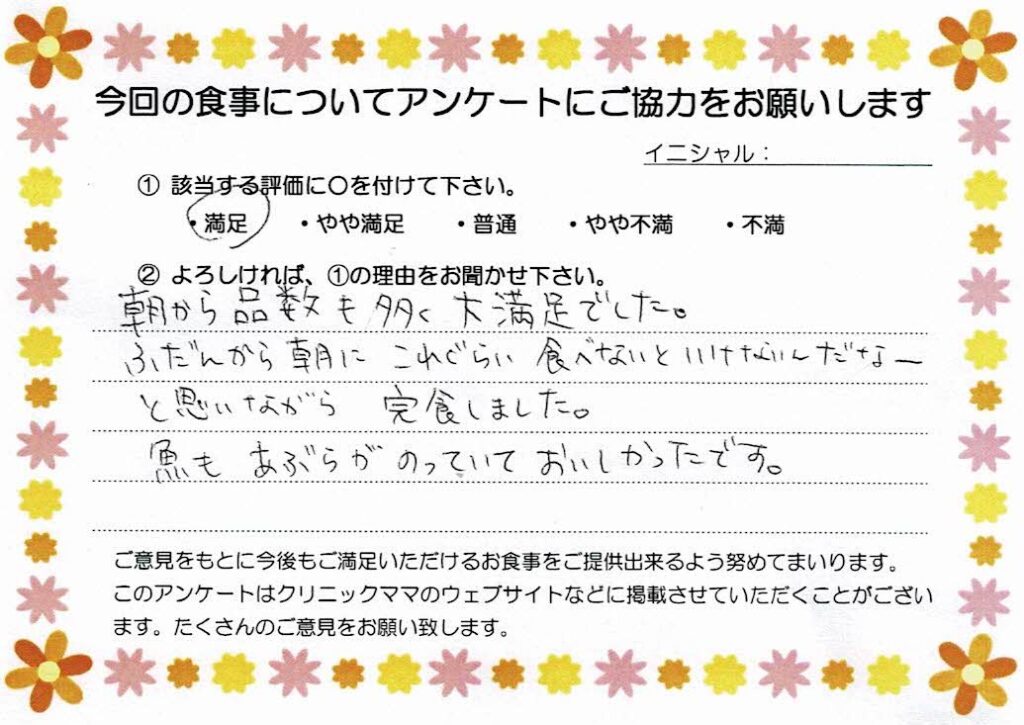 今回の食事についてアンケートにご協力をお願いします
イニシャル：
① 該当する評価に〇を付けて下さい。
・満足 ・やや満足 ・普通 ・やや不満 ・不満
② よろしければ、①の理由をお聞かせ下さい。
朝から品数も多く大満足でした。
ふだんから朝に これぐらい 食べないといけないんだなー
と思いながら 完食しました。
魚も あぶらが のっていて おいしかったです。
ご意見をもとに今後もご満足いただけるお食事をご提供出来るよう努めてまいります。
このアンケートはクリニックママのウェブサイトなどに掲載させていただくことがござい
ます。たくさんのご意見をお願い致します。